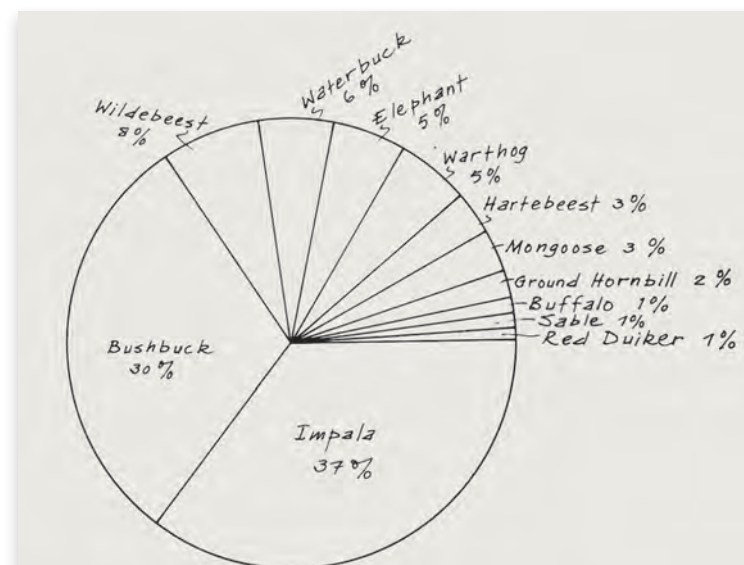 Waterbuck
6%
Elephant
5%
Wildebeest
8%
Warthog
5%
Hartebeest 3%
Mongoose 3%
Ground Hornbill 2%
Buffalo 1%
Sable 1%
Red Duiker 1%
Bushbuck
30%
Impala
37%